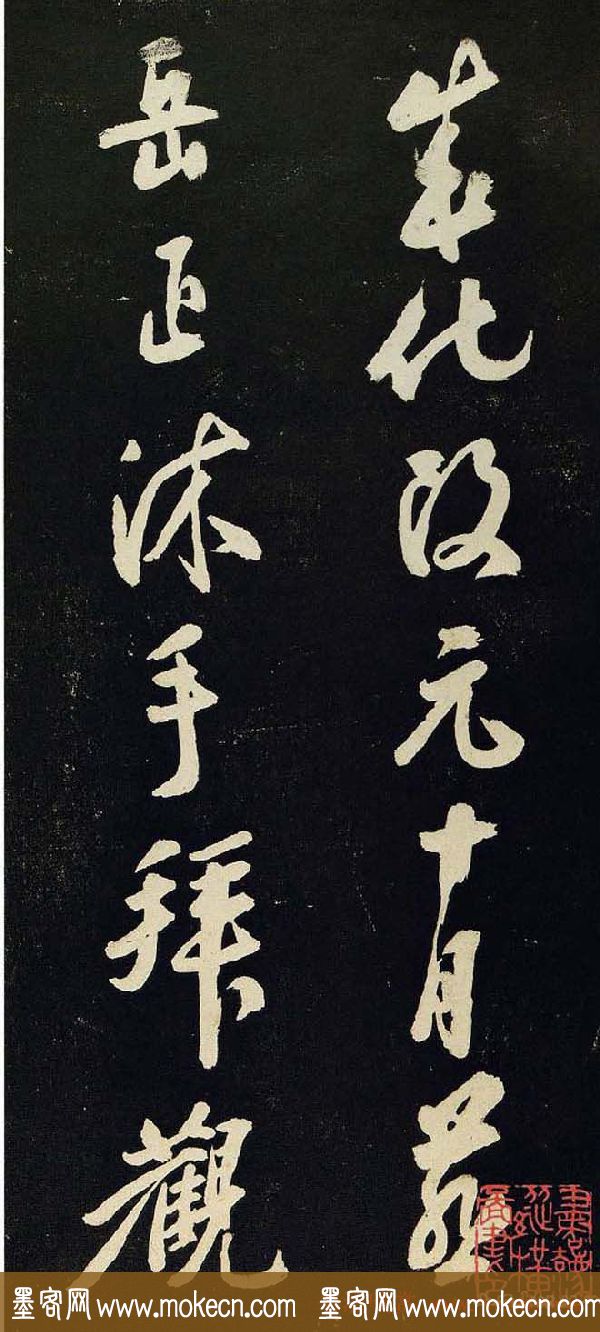 成化改元十月
岳正沐手拜觀
墨客网 www.mokecn.com 墨客网 www.mokecn.com